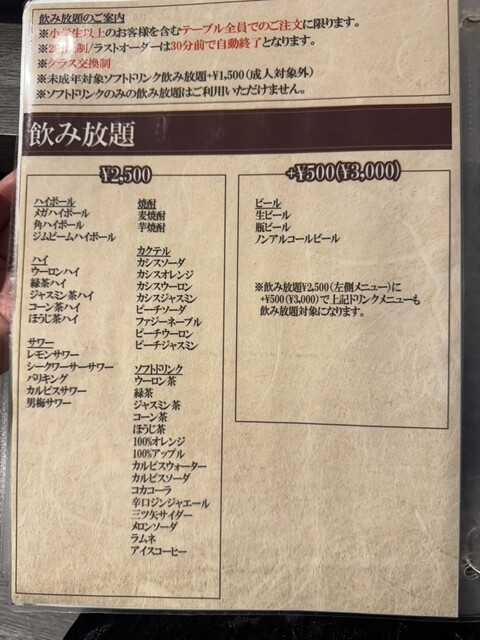 飲み放題のご案内
※小学生以上のお客様を含むテーブル全員でのご注文に限ります。
制/ラストオーダーは30分前で自動終了となります。
※グラス交換制
※未成年対象ソフトドリンク飲み放題+¥1,500(成人対象外)
※ソフトドリンクのみの飲み放題はご利用いただけません。
飲み放題
¥2,500
ハイボール
メガハイボール
角ハイボール
ジムビームハイボール
ハイ
ウーロンハイ
緑茶ハイ
ジャスミン茶ハイ
コーン茶ハイ
ほうじ茶ハイ
サワー
レモンサワー
シークワーサーサワー
バリキング
カルピスサワー
男梅サワー
焼酎
麦焼酎
芋焼酎
カクテル
カシスソーダ
カシスオレンジ
カシスウーロン
カシスジャスミン
ピーチソーダ
ファジーネーブル
ピーチウーロン
ピーチジャスミン
ソフトドリンク
ウーロン茶
緑茶
ジャスミン茶
コーン茶
ほうじ茶
100%オレンジ
100%アップル
カルピスウォーター
カルピスソーダ
コカコーラ
辛口ジンジャエール
三ツ矢サイダー
メロンソーダ
ラムネ
アイスコーヒー
+¥500(¥3,000)
ビール
生ビール
瓶ビール
ノンアルコールビール
※飲み放題¥2,500(左側メニュー)に
+¥500(¥3,000)で上記ドリンクメニューも
飲み放題対象になります。